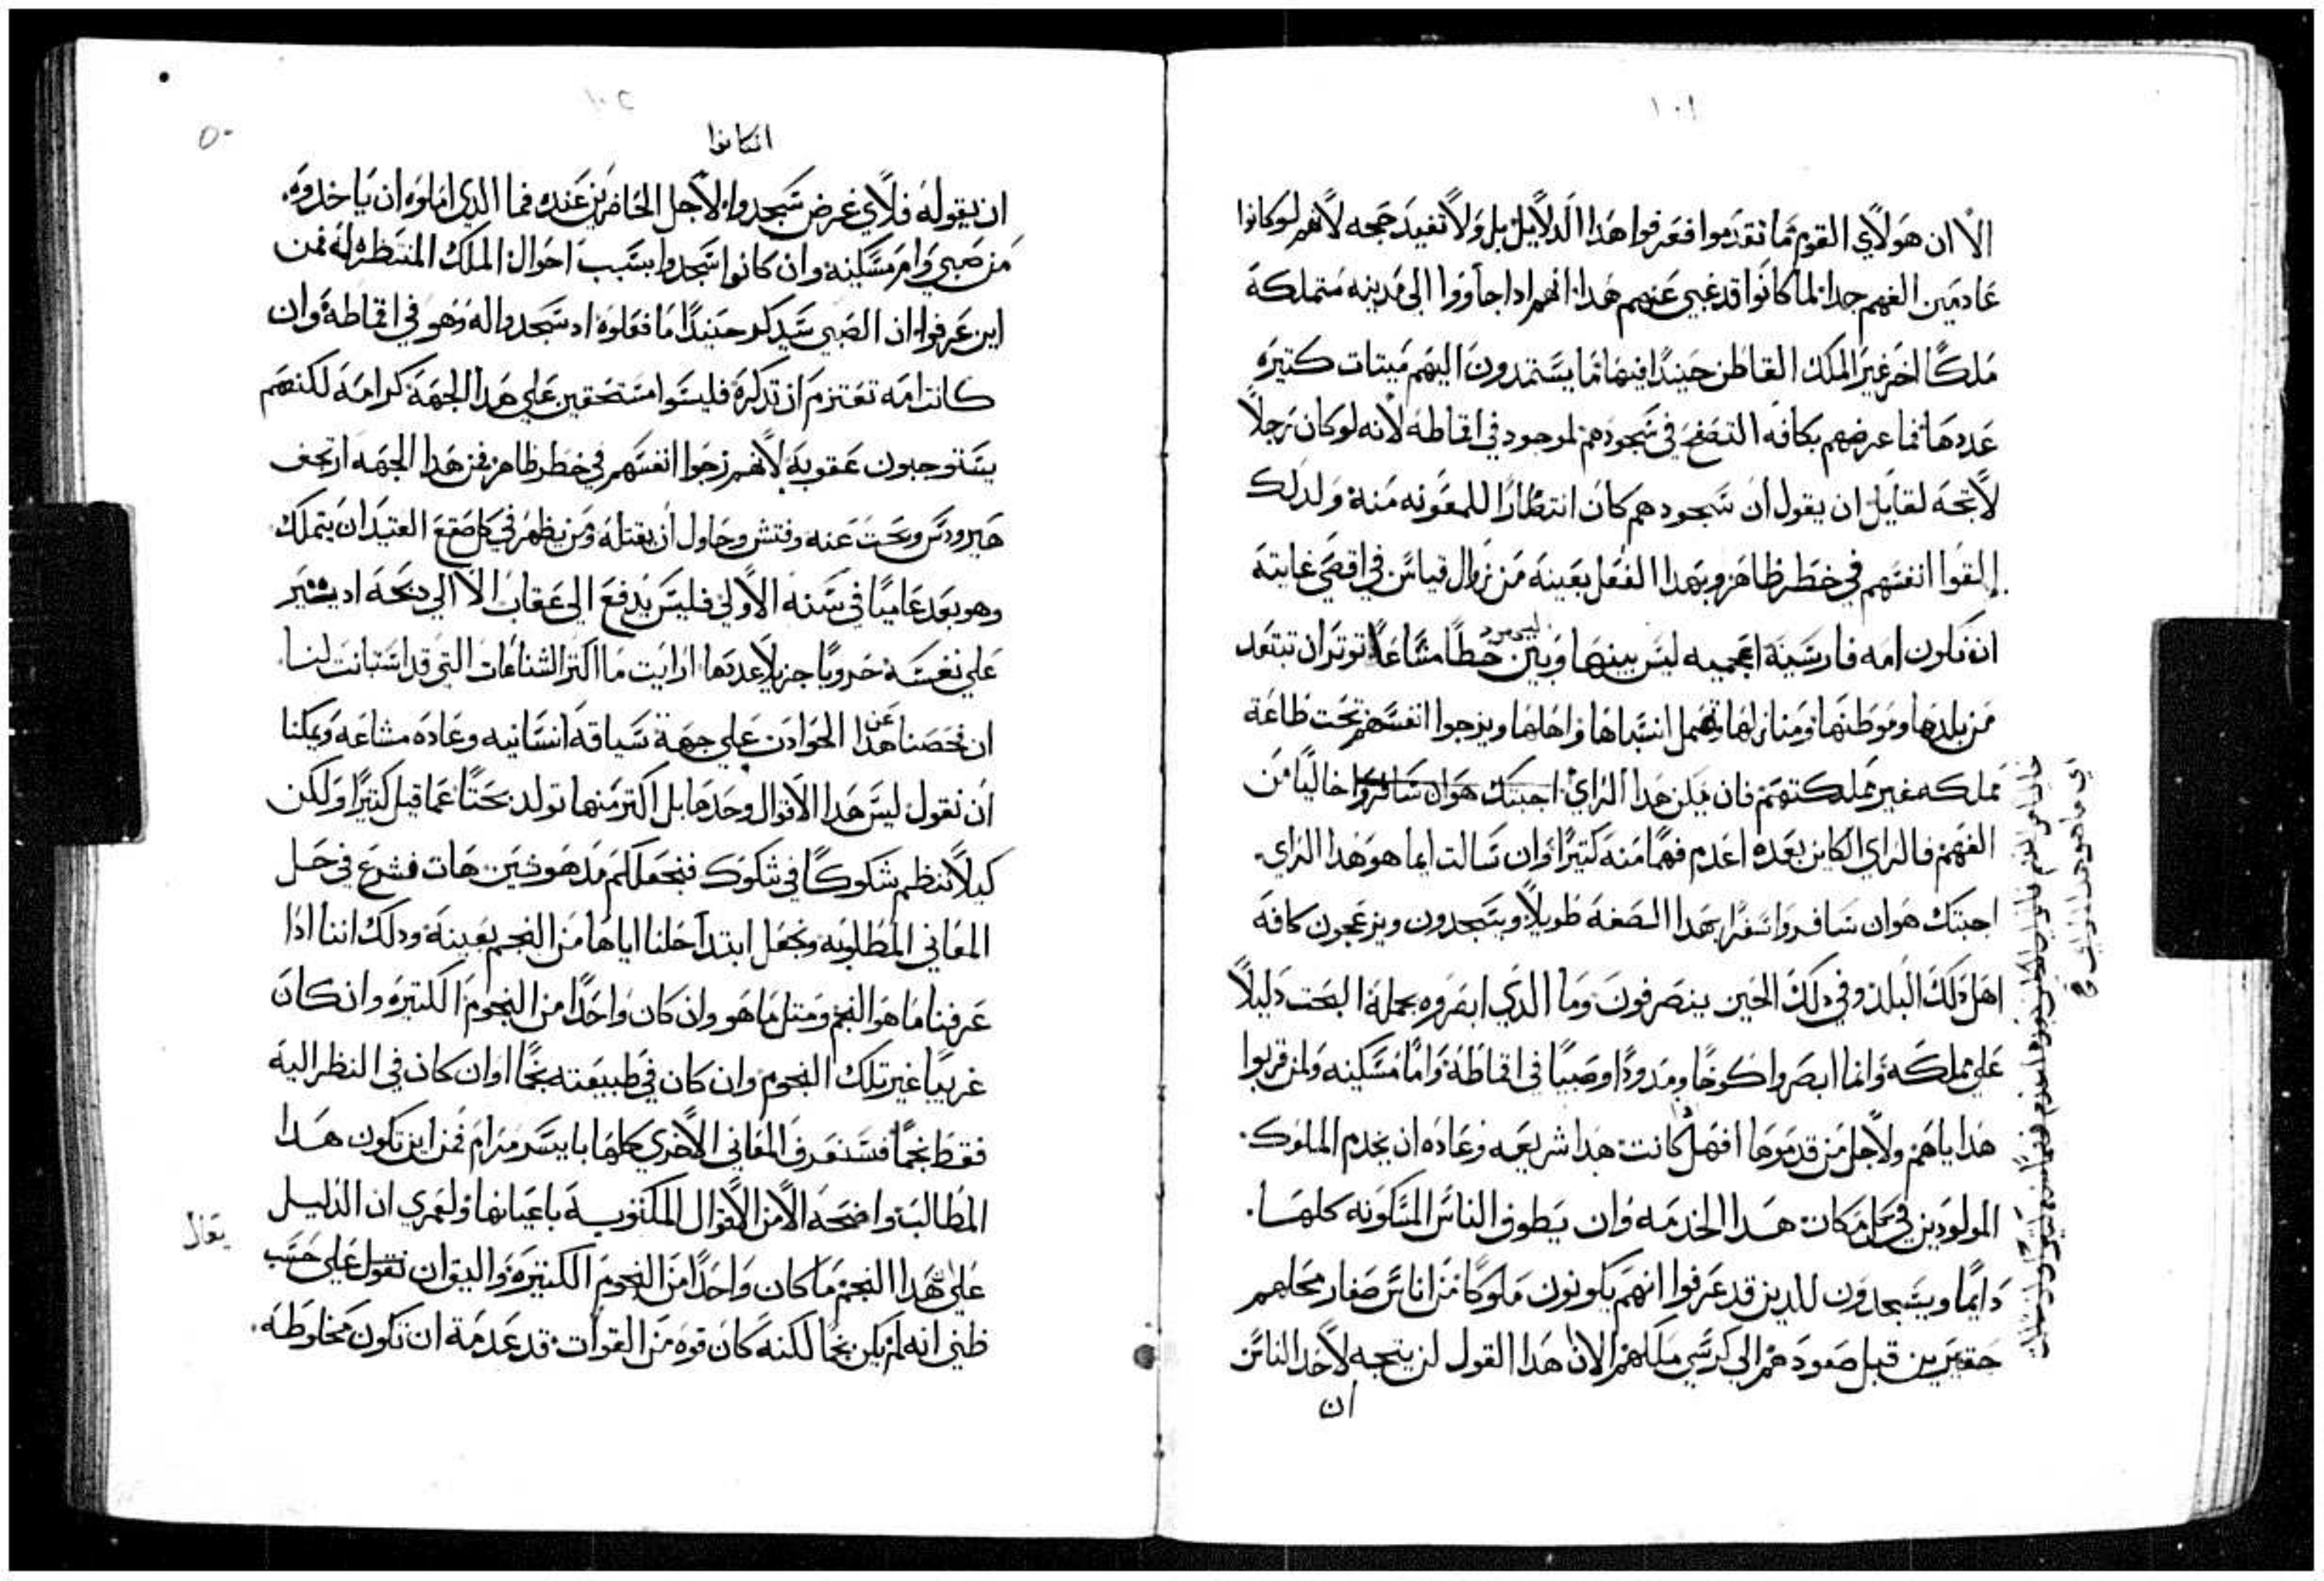 ١٠١
الا ان هولاي القوم ما تقدموا فعرفوا هدا الدلايل بل ولا تفيد حجه لانهم لو كانوا
عادمين الفهم جدا لما كانوا قد غبي عنهم هدا انهم ادا جاووا الى مدينه متملكة
ملكًا اخر غير الملك القاطن حينيدًا فيها ما يستمدون اليهم ميتات كتيره
عددها فما عرضهم بكافه التصفح في سجودهم لموجود في اقماطه لانه لو كان رجلاً
لاتجه لقايل ان يقول ان سجودهم كان انتظارًا للمعونه منه ولدلك
القوا انفسهم في خطر ظاهر وبهدا الفعل بعينه من زوال قياس في اقصي غايته
ان تكون امه فارسية اعجميه ليس بينها وبين حظًا مشاعًا توتر ان تبتعد
من بلدها وموطنها ومنازلها وتهمل انتسابها واهلها ويزجوا انفسهم تحت طاعة
مملكه غير مملكتهم فان يكن هدا الراي اجبتك هو ان سافروا خاليًا من
الفهم فالراي الكاين بعده اعدم فهمًا منه كتيرًا وان سالت ايما هو هدا الراي
اجبتك هو ان سافروا سفرًا بهدا الصفة طويلاً ويسجدون ويزعجون كافة
اهل دلك البلد وفي دلك الحين ينصرفون وما الدي ابصروه بجملة البحت دليلاً
على مملكه وانما ابصروا كوخًا ومدودًا وصبيًا في اقماطه وامًا مسكينه ولمن قربوا
هداياهم ولاجل من قدموها افهل كانت هدا شريعه وعاده ان يخدم الملوك
المولودين في كل مكان هدا الخدمه وان يطوفوا الناس المسكونه كلها
دايمًا ويسجدون للدين قد عرفوا انهم يكونون ملوكًا من اناس صغار محلهم
حقيرين قبل صعودهم الى كرسي ملكهم الا ان هدا القول لن يتجه لاحد الناس
ان
اي ما هو هدا الراي
١٠٢
٥٠
ان كانوا
ان يقوله فلاي غرض سجدوا لاجل الحاضرين عنده فما الدي املوه ان ياخدوه
من صبي وام مسكينة وان كانوا سجدوا بسبب احوال الملك المنتظره له فمن
اين عرفوا ان الصبي سيدكر حينيدًا ما فعلوه اد سجدوا له وهو في اقماطة وان
كانت امه تعتزم ان تدكره فليسوا مستحقين على هدا الجهة كرامة لكنهم
يستوجبون عقوبة لانهم زجوا انفسهم في خطر ظاهر فمن هدا الجهه ارتجف
هيرودس وبحت عنه وفتش وحاول ان يقتله ومن يظهر في كل صقع العتيد ان يتملك
وهو بعد عاميًا في سنه الاولى فليس يدفع الى عقاب الا الي دبحه اد يتير
على نفسه حروبًا جزيلاً عددها ارايت ما اكتر الشناعات التي قد استبانت لنا
ان فحصنا عن هدا الحوادت على جهة سياقة انسانيه وعاده مشاعه ويمكنا
ان نقول ليس هدا الاقوال وحدها بل اكتر منها تولد بحتًا عما قيل كتيرًا ولكن
كيلا ننظم شكوكًا في شكوك فنجعلكم مدهوشين هات فشرع في حل
المعاني المطلوبه ونجعل ابتدا حلنا اياها من النجم بعينة ودلك اننا ادا
عرفنا ما هو النجم ومتل ما هو وان كان واحدًا من النجوم الكتيره وان كان
غريبًا غير تلك النجوم وان كان في طبيعته نجمًا او ان كان في النظر اليه
فقط نجمًا فسنعرف المعاني الاخري كلها بايسر مرام فمن اين تكون هدا
المطالب واضحه الا من الاقوال المكتوبه باعيانها ولعمري ان الدليل
على هدا النجم ما كان واحدًا من النجوم الكتيرة واليق ان نقول على حسب
يقال
ظني انه لم يكن نجمًا لكنه كان قوه من القوات قد عدمة ان تكون مخاوطه